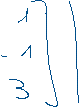 1
-1
3